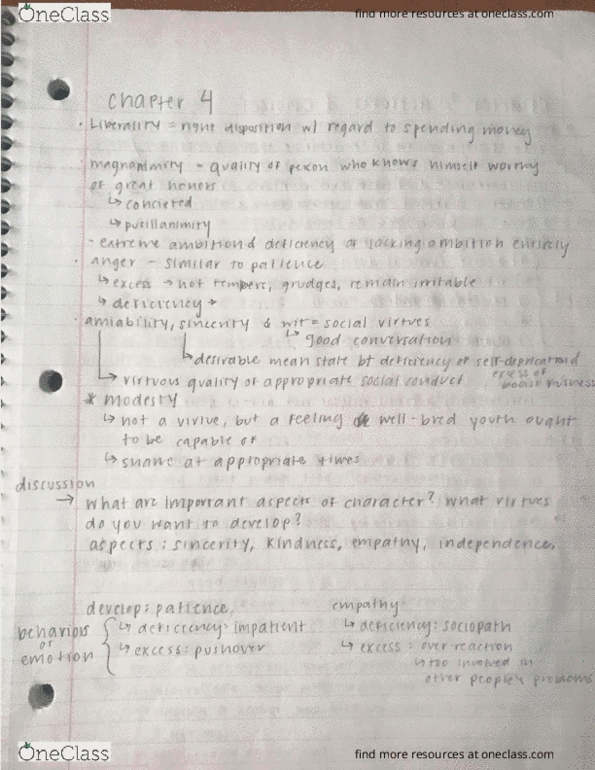 OneClass
find more resources at oneclass.com
chapter 4
· Liberality = right disposition w/ regard to spending money
· magnanimity = quality of person who knows himself worthy
of great honors
↳ concieted
↳ pusillanimity
- extreme ambition & deficiency or lacking ambition entirely
· anger - similar to patience
↳ excess → hot tempers, grudges, remain irritable
↳ deficiency →
· amiability, sincerity & wit = social virtues
↳ good conversation
↳ desirable mean state bt deficiency of self-deprecation and
excess of
↳ virtuous quality of appropriate social conduct
boorishness
* modesty
↳ not a virtue, but a feeling well-bred youth ought
to be capable of
↳ shame at appropriate times
discussion
→ what are important aspects of character? what virtues
do you want to develop?
aspects: sincerity, kindness, empathy, independence,
develop: patience, empathy
behaviors ↳ deficiency: impatient ↳ deficiency: sociopath
or
emotion ↳ excess: pushover ↳ excess: over reaction
↳ too involved in
other people's problems
OneClass
find more resources at oneclass.com